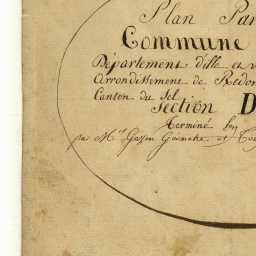 Plan Par
Commune
Département d'ille et v
Arrondissement de Redon
Canton du Sel
Section D
Terminé
par Mrs et